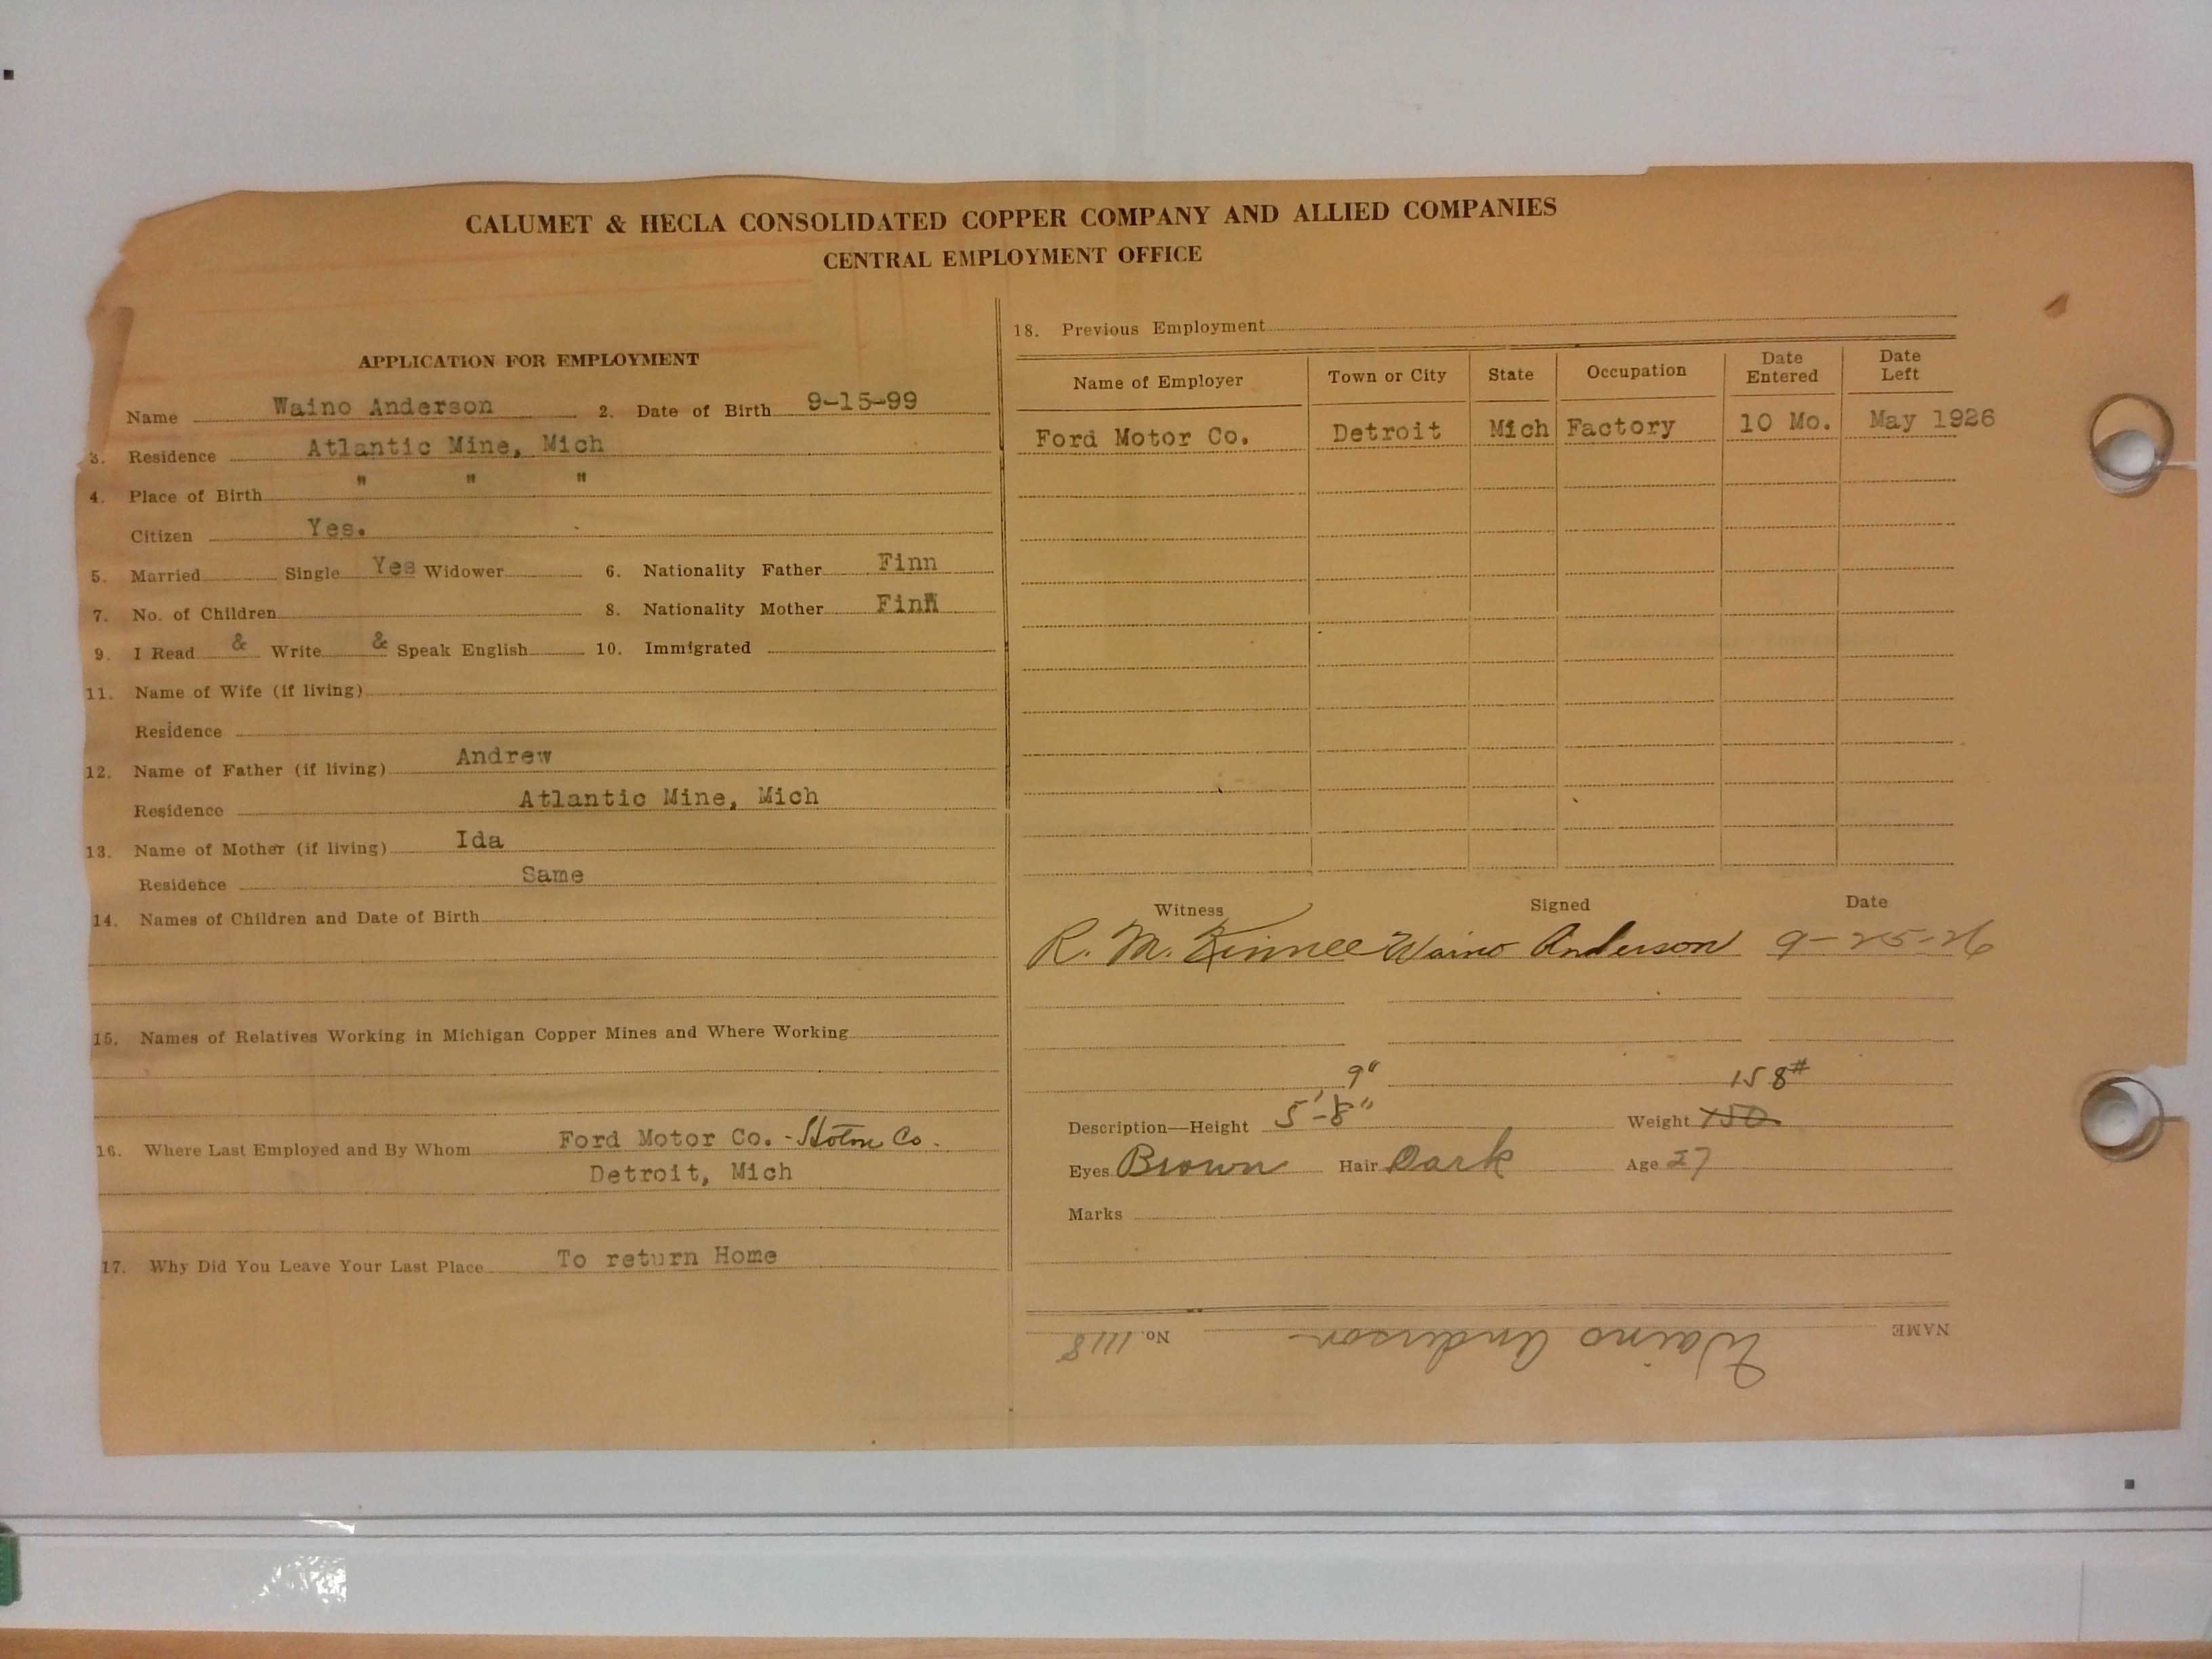 CALUMET & HECLA CONSOLIDATED COPPER COMPANY AND ALLIED COMPANIES
CENTRAL EMPLOYMENT OFFICE
APPLICATION FOR EMPLOYMENT
Name Waino Anderson 2. Date of Birth 9-15-99
3. Residence Atlantic Mine, Mich
4. Place of Birth " " "
Citizen Yes.
5. Married Single Yes Widower 6. Nationality Father Finn
7. No. of Children 8. Nationality Mother Finn
9. I Read & Write & Speak English 10. Immigrated
11. Name of Wife (if living)
Residence
12. Name of Father (if living) Andrew
Residence Atlantic Mine, Mich
13. Name of Mother (if living) Ida
Residence Same
14. Names of Children and Date of Birth
15. Names of Relatives Working in Michigan Copper Mines and Where Working
16. Where Last Employed and By Whom Ford Motor Co. - Co.
Detroit, Mich
17. Why Did You Leave Your Last Place To return Home
18. Previous Employment
Name of Employer Town or City State Occupation Date Entered Date Left
Ford Motor Co. Detroit Mich Factory 10 Mo. May 1926
Witness Signed Date
R. M. Kinnee Waino Anderson 9-25-26
9" 158#
Description—Height 5'-8" Weight 150
Eyes Brown Hair Dark Age 27
Marks
NAME Waino Anderson No. 1118